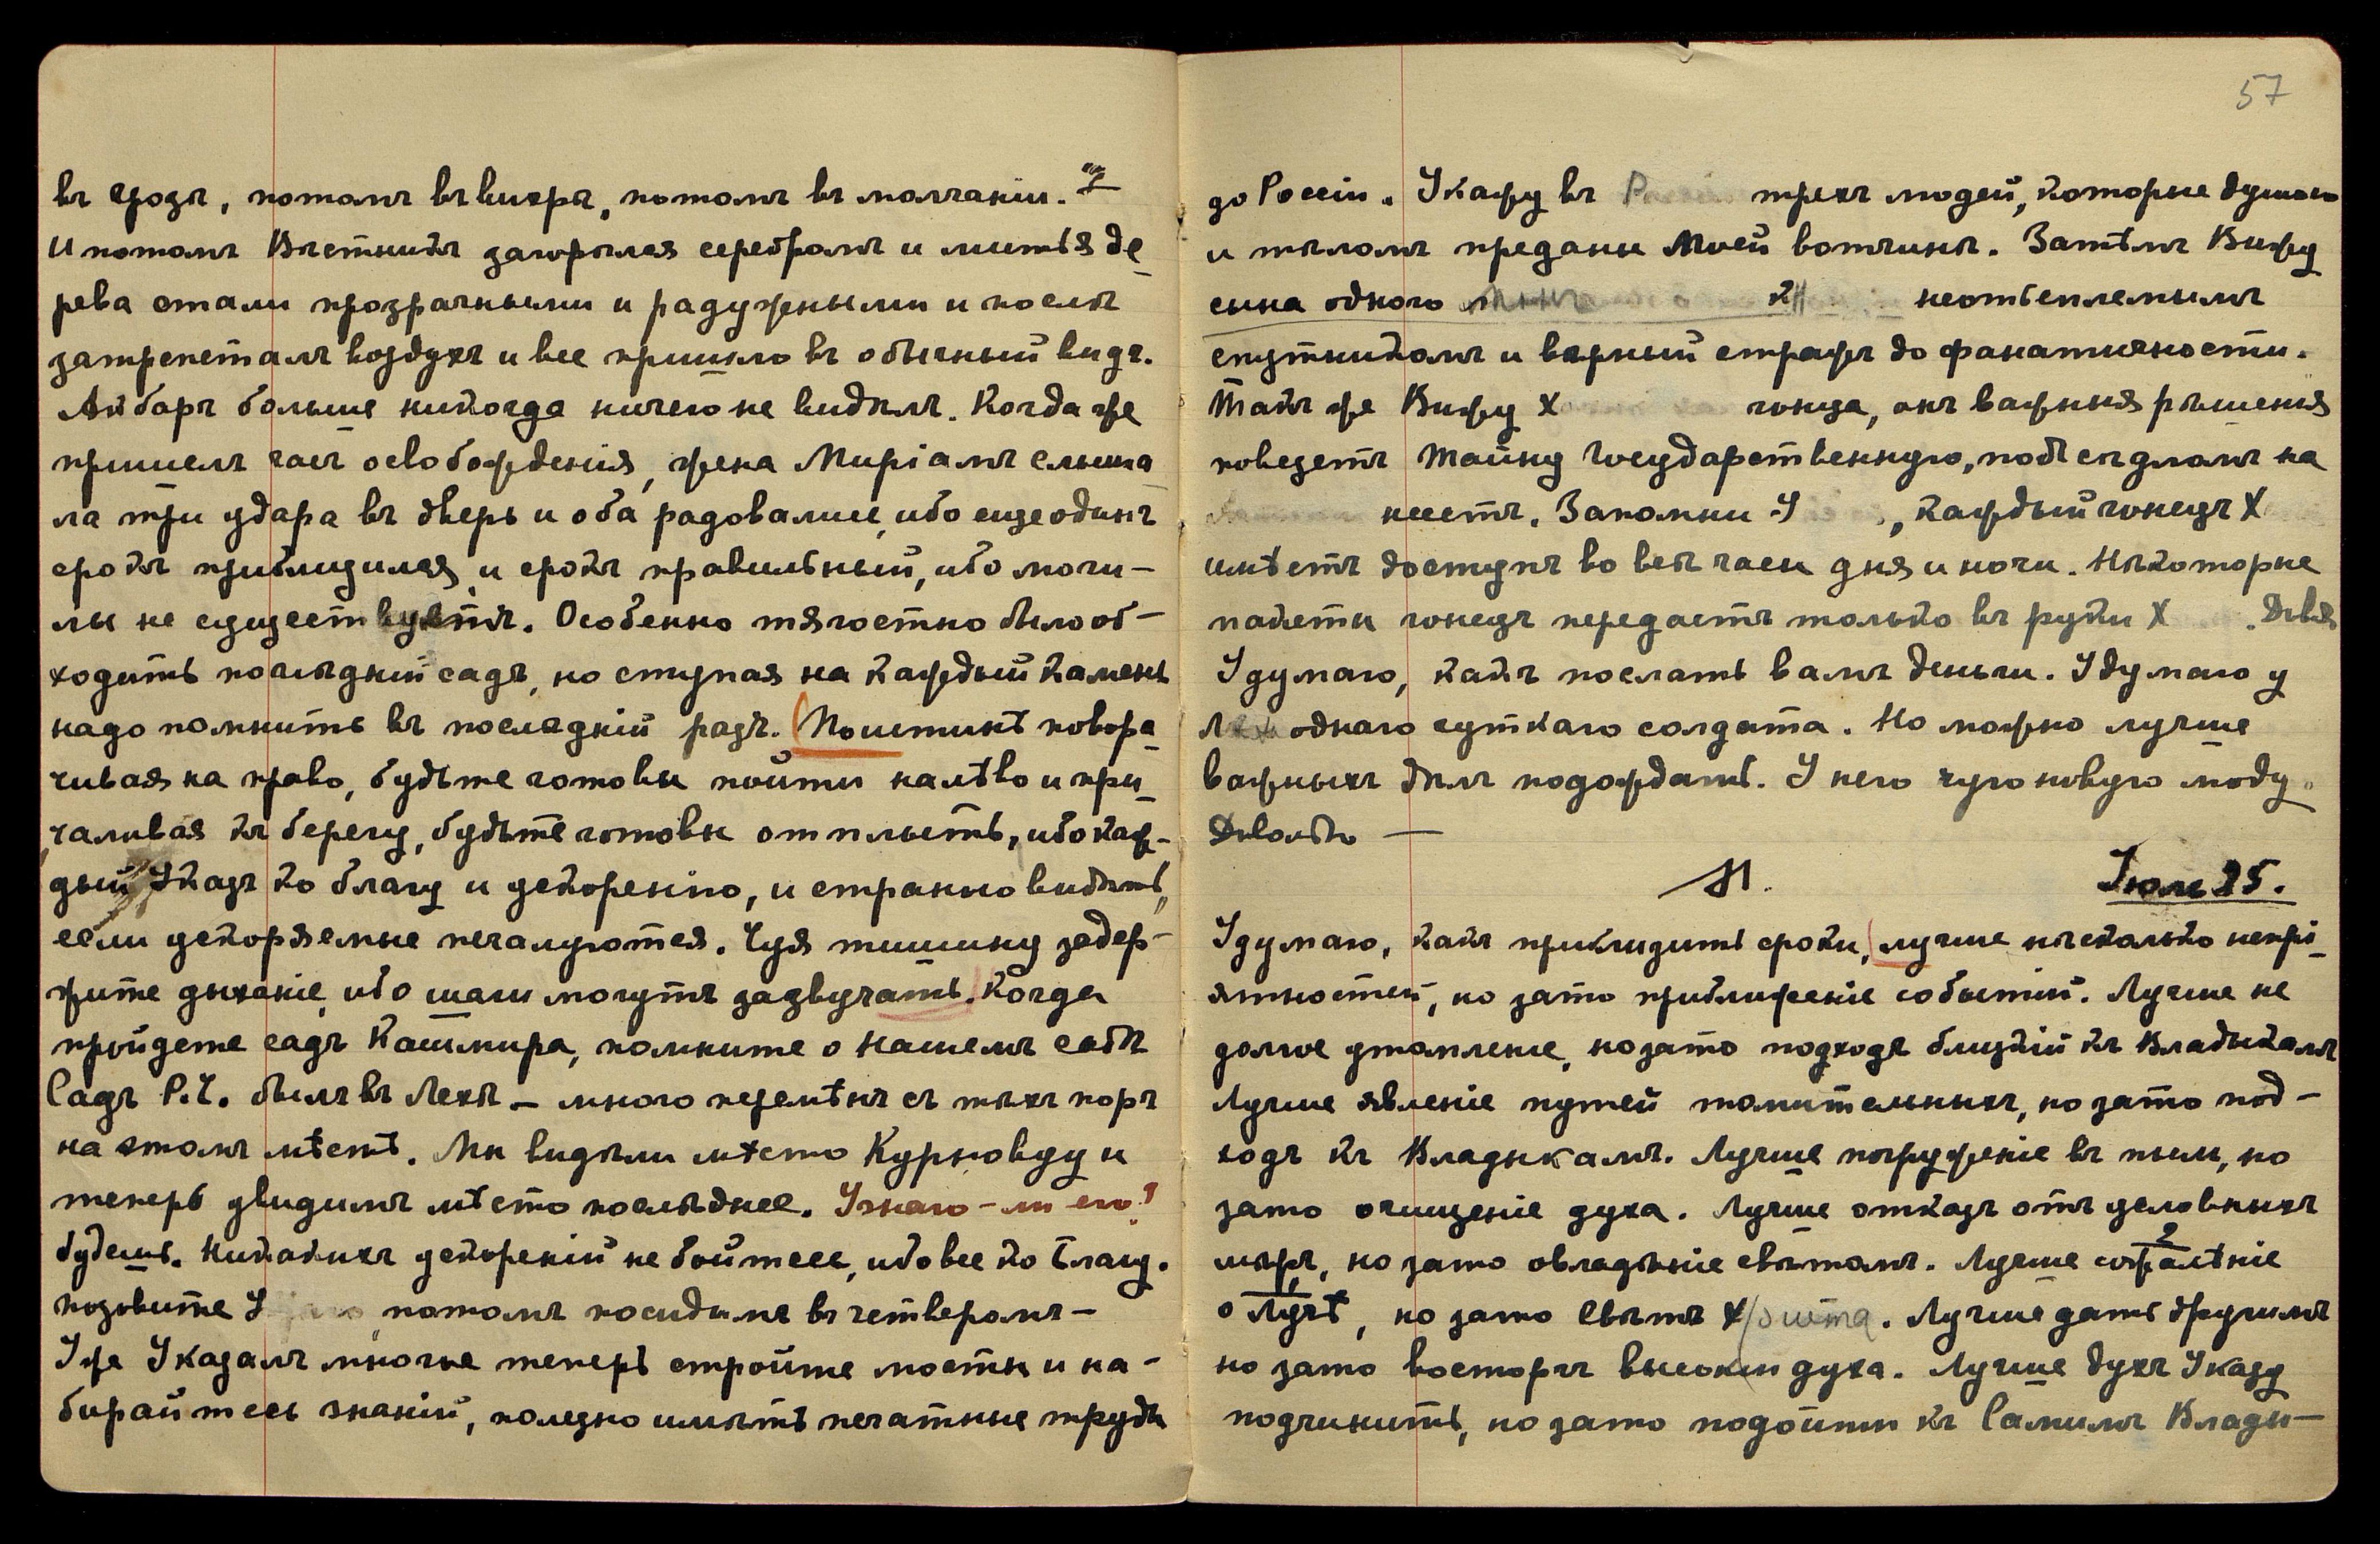 въ грозѣ, потомъ въ вихрѣ, потомъ въ молчаніи.
И потомъ Вѣстникъ загорѣлся серебромъ и листья де-
рева стали прозрачными и радужными и послѣ
затрепеталъ воздухъ и все пришло въ обычный видъ.
Акбаръ больше никогда ничего не видѣлъ. Когда же
пришелъ часъ освобожденія, жена Миріамъ слыша
ла три удара въ дверь и оба радовались, ибо еще одинъ
срокъ приблизился, и срокъ правильный, ибо моги-
лы не существуетъ. Особенно тягостно было об-
ходить послѣдній садъ, но ступая на каждый камень
надо помнить въ последній разъ. (Поистинѣ повора-
чивая на право, будьте готовы пойти налѣво и при-
чаливая къ берегу, будьте готовы отплыть, ибо каж-
дый Указъ ко благу и ускоренію, и странно видѣть,
если ускоряемые печалуются. Чуя тишину задер-
жите дыханіе, ибо шаги могутъ зазвучать. Когда
пройдете садъ Кашмира, помните о Нашемъ садѣ
Садъ Р.Ч. былъ въ Лехѣ – много перемѣнъ съ тѣхъ поръ
на этомъ мѣстѣ. Мы видѣли мѣсто Курновуу и
теперь увидимъ мѣсто послѣднее. Узнаю-ли его?
будешь. Никакихъ ускореній не бойтесь, ибо все ко благу.
позовите У потомъ посидимъ въ четверомъ –
Уже Указалъ многое теперь стройте мосты и на-
бирайтесь знаній, полезно имѣть печатные труды
57
до Россіи. Укажу въ трехъ людей, которые душою
и тѣломъ преданы Моей вотчинѣ. Затѣмъ Вижу
сына одного неотъемлемымъ
спутникомъ и вѣрный стражъ до фанатичности.
Также Вижу Х гонца, онъ важныя рѣшенія
повезетъ тайну государственную, подъ сѣдломъ на
несетъ. Запомни У , каждый гонецъ Х
имѣетъ доступъ во всѣ часы дня и ночи. Нѣкоторые
пакеты гонецъ передастъ только въ руки Х . Довл.
Удумаю, какъ послать вамъ деньги. Удумаю у
одного чуткаго солдата. Но можно лучше
важныхъ дѣлъ подождать. У него чую новую моду.
Довольно —
М. Іюль 25.
Удумаю, какъ приблизить сроки, лучше нѣсколько непрі-
ятностей, но зато приближеніе событій. Лучше не
долгое утомленіе, но зато подходъ близкій къ Владыкамъ
Лучше явленіе путей томительныхъ, но зато под-
ходъ къ Владыкамъ. Лучше погруженіе въ пыли, но
зато очищеніе духа. Лучше отказъ отъ условныхъ
мѣръ, но зато овладѣніе свѣтомъ. Лучше сожалѣніе
о Лучѣ, но зато Свѣтъ Христа. Лучше дать другимъ
но зато восторгъ высокій духа. Лучше духъ Указу
подчинить, но зато подойти къ Самимъ Влады-